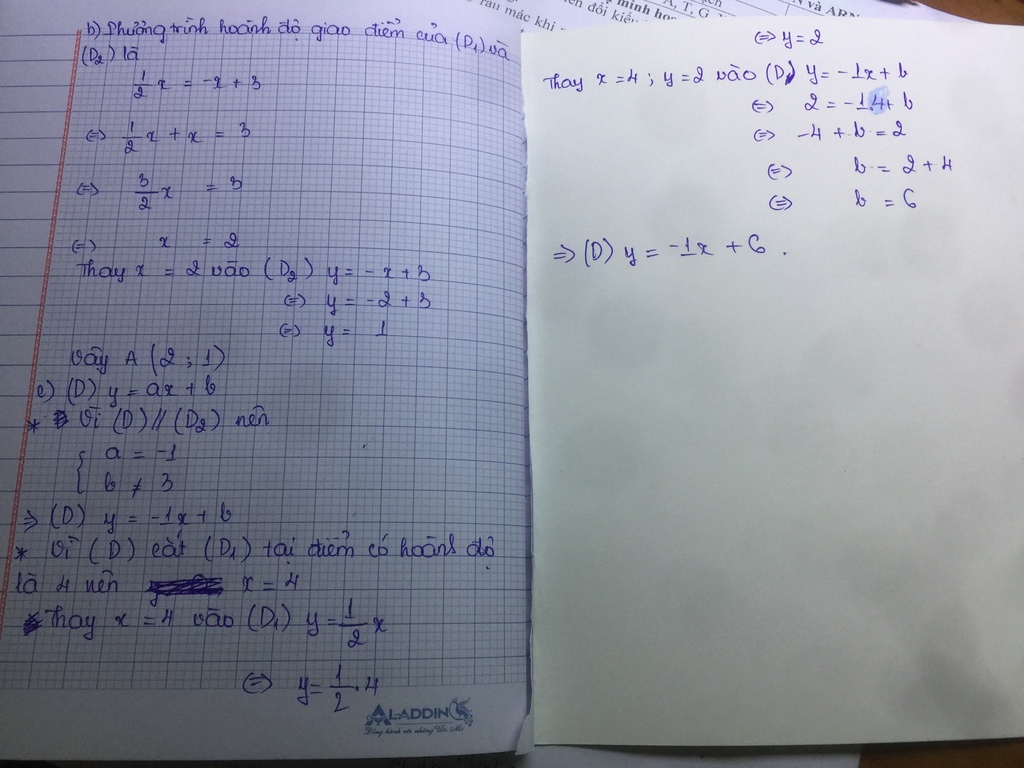 b) Phương trình hoành độ giao điểm của (D1) và
(D2) là
1/2 x = -x + 3
⇔ 1/2 x + x = 3
⇔ 3/2 x = 3
⇔ x = 2
Thay x = 2 vào (D2) y = -x + 3
⇔ y = -2 + 3
⇔ y = 1
Vậy A (2 ; 1)
c) (D) y = ax + b
* Vì (D) // (D2) nên
{ a = -1
b ≠ 3
⇒ (D) y = -1x + b
* Vì (D) cắt (D1) tại điểm có hoành độ
là 4 nên x = 4
Thay x = 4 vào (D1) y = 1/2 x
⇔ y = 1/2 . 4
ALADDIN
⇔ y = 2
Thay x = 4 ; y = 2 vào (D) y = -1x + b
⇔ 2 = -1 4 + b
⇔ -4 + b = 2
⇔ b = 2 + 4
⇔ b = 6
⇒ (D) y = -1x + 6 .